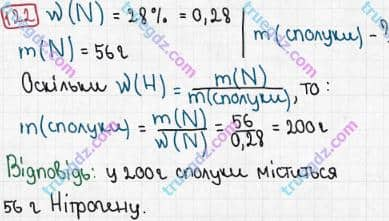 122 w(N) = 28% = 0,28
m(N) = 56г
m(сполуки) - ?
Оскільки w(H) = m(N) / m(сполуки), то:
m(сполуки) = m(N) / w(N) = 56 / 0,28 = 200г
Відповідь: у 200г сполуки міститься
56 г Нітрогену.